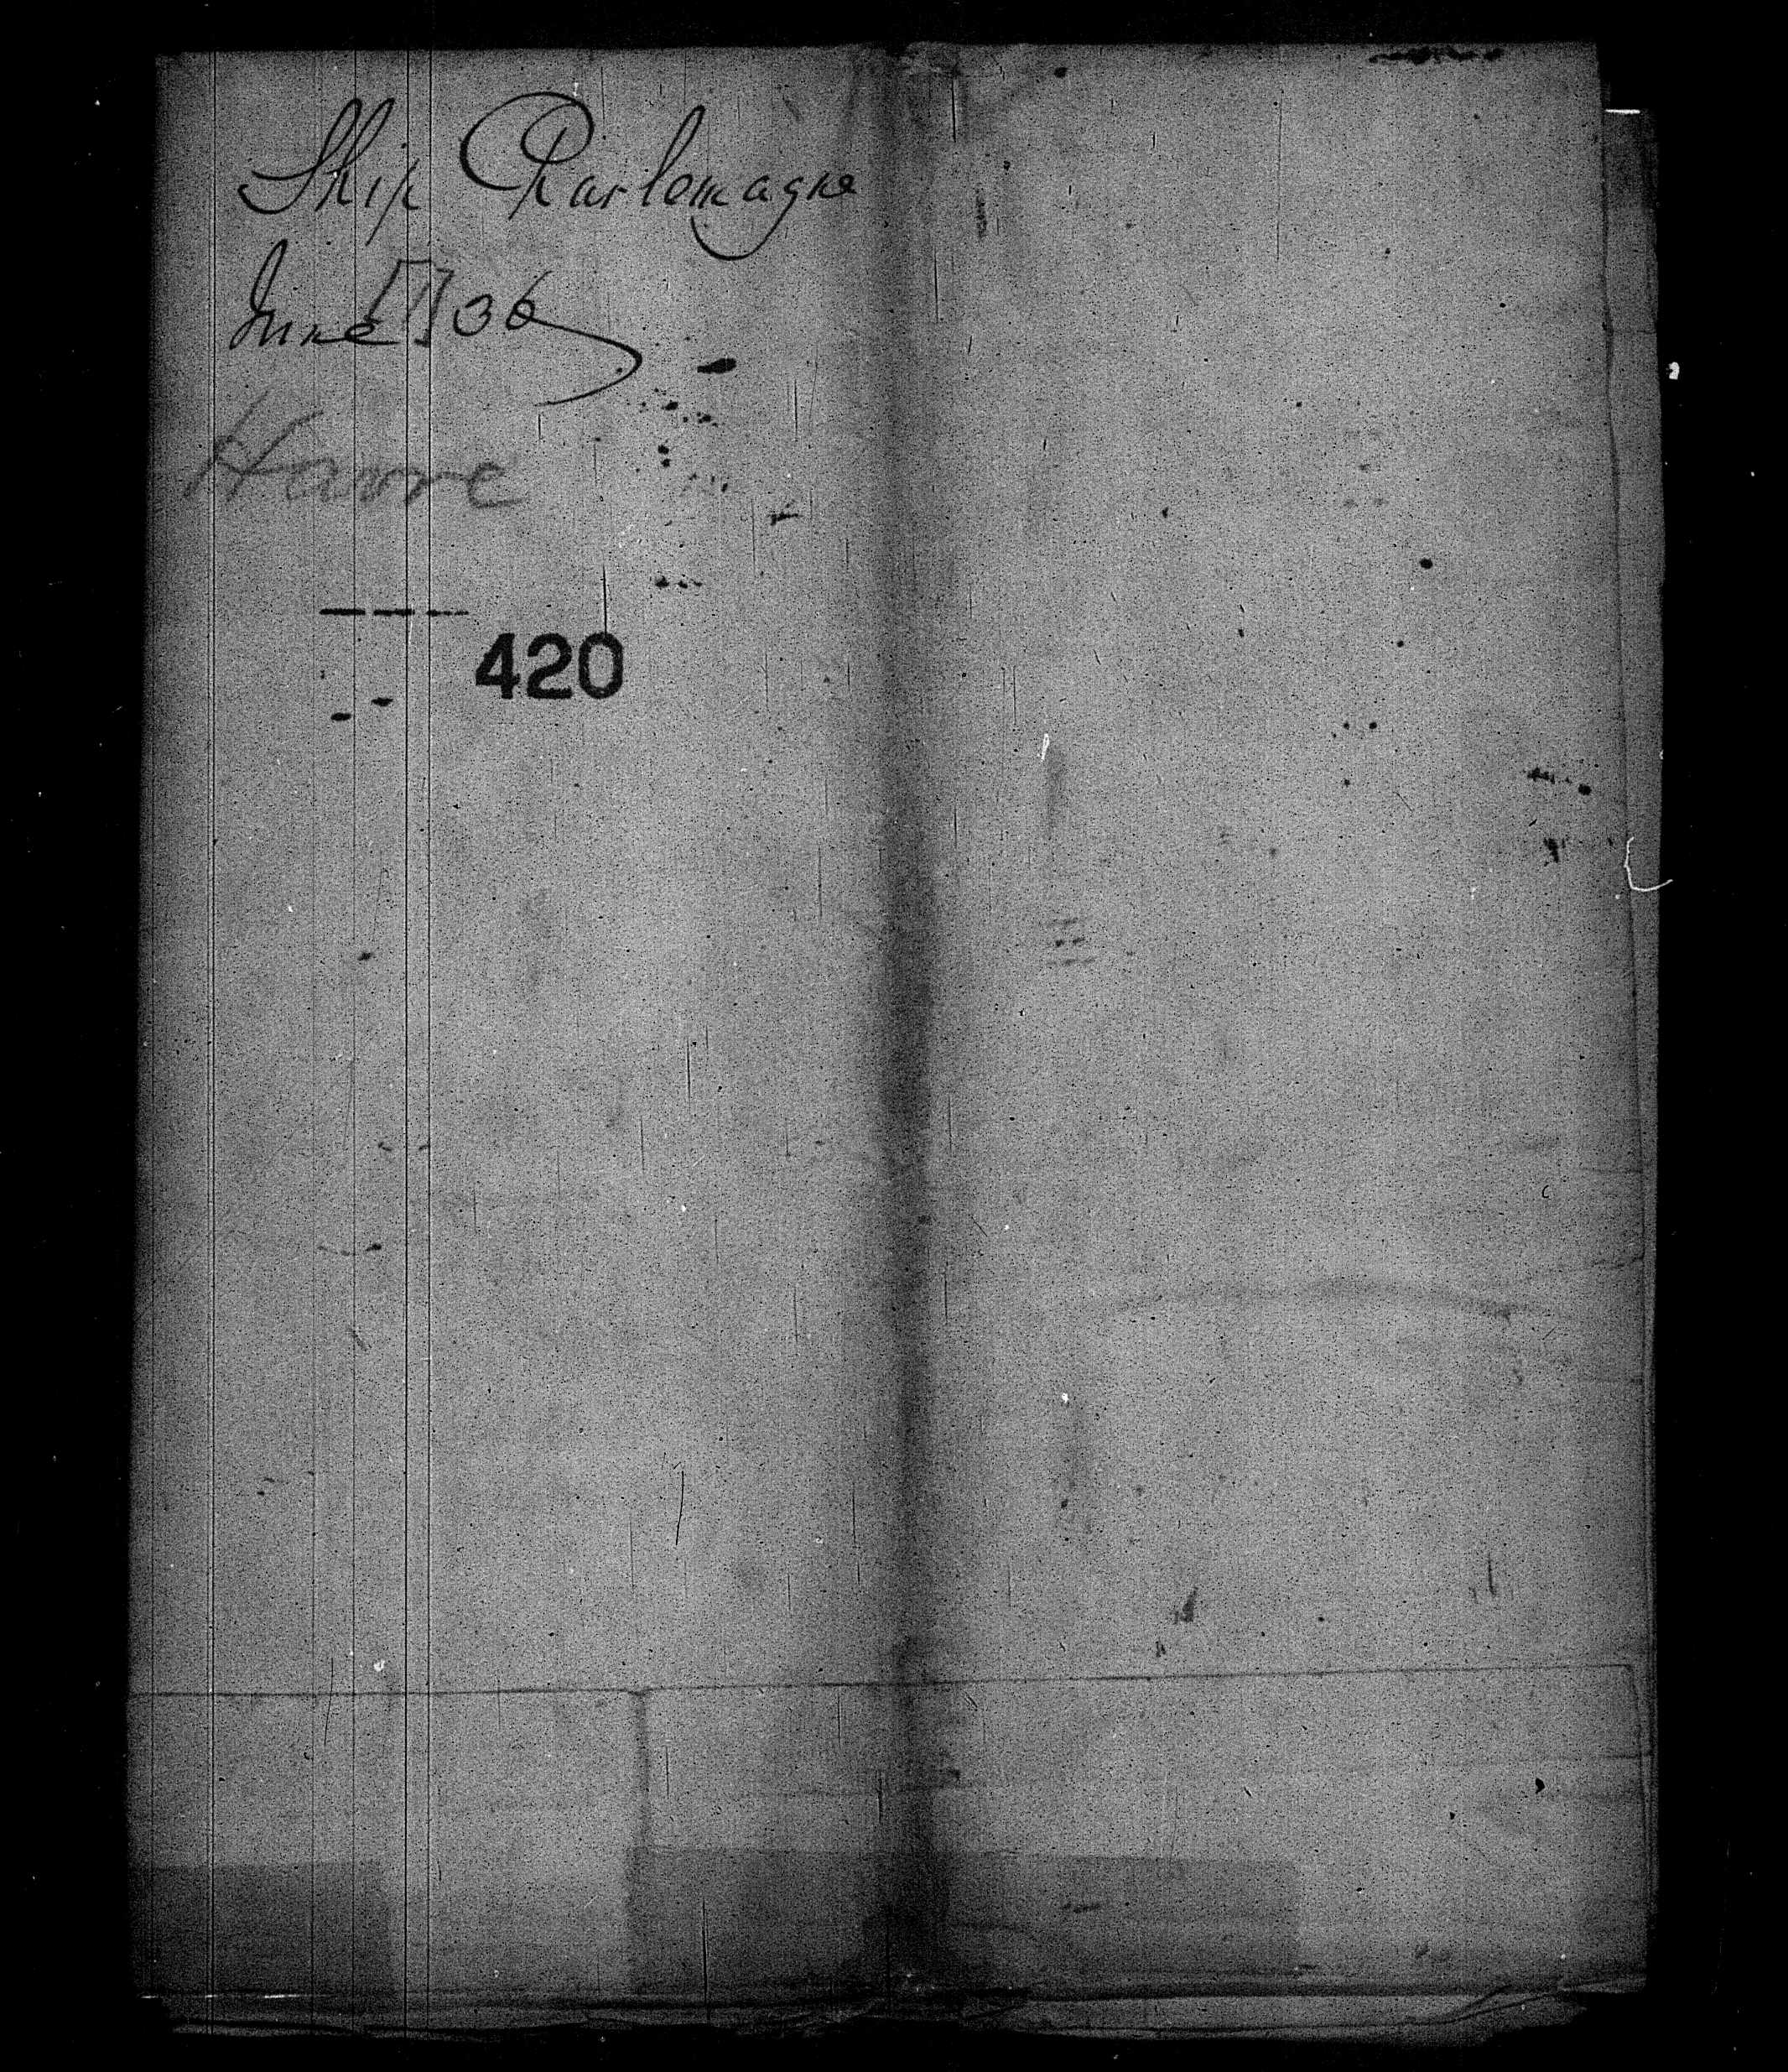 Ship Charlemagne
June [1] 36
Havre
420